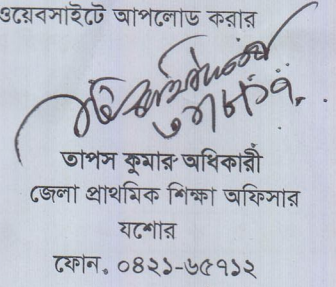 ওয়েবসাইটে আপলোড করার
তাপস কুমার অধিকারী
জেলা প্রাথমিক শিক্ষা অফিসার
যশোর
ফোন. ০৪২১-৬৫৭১২